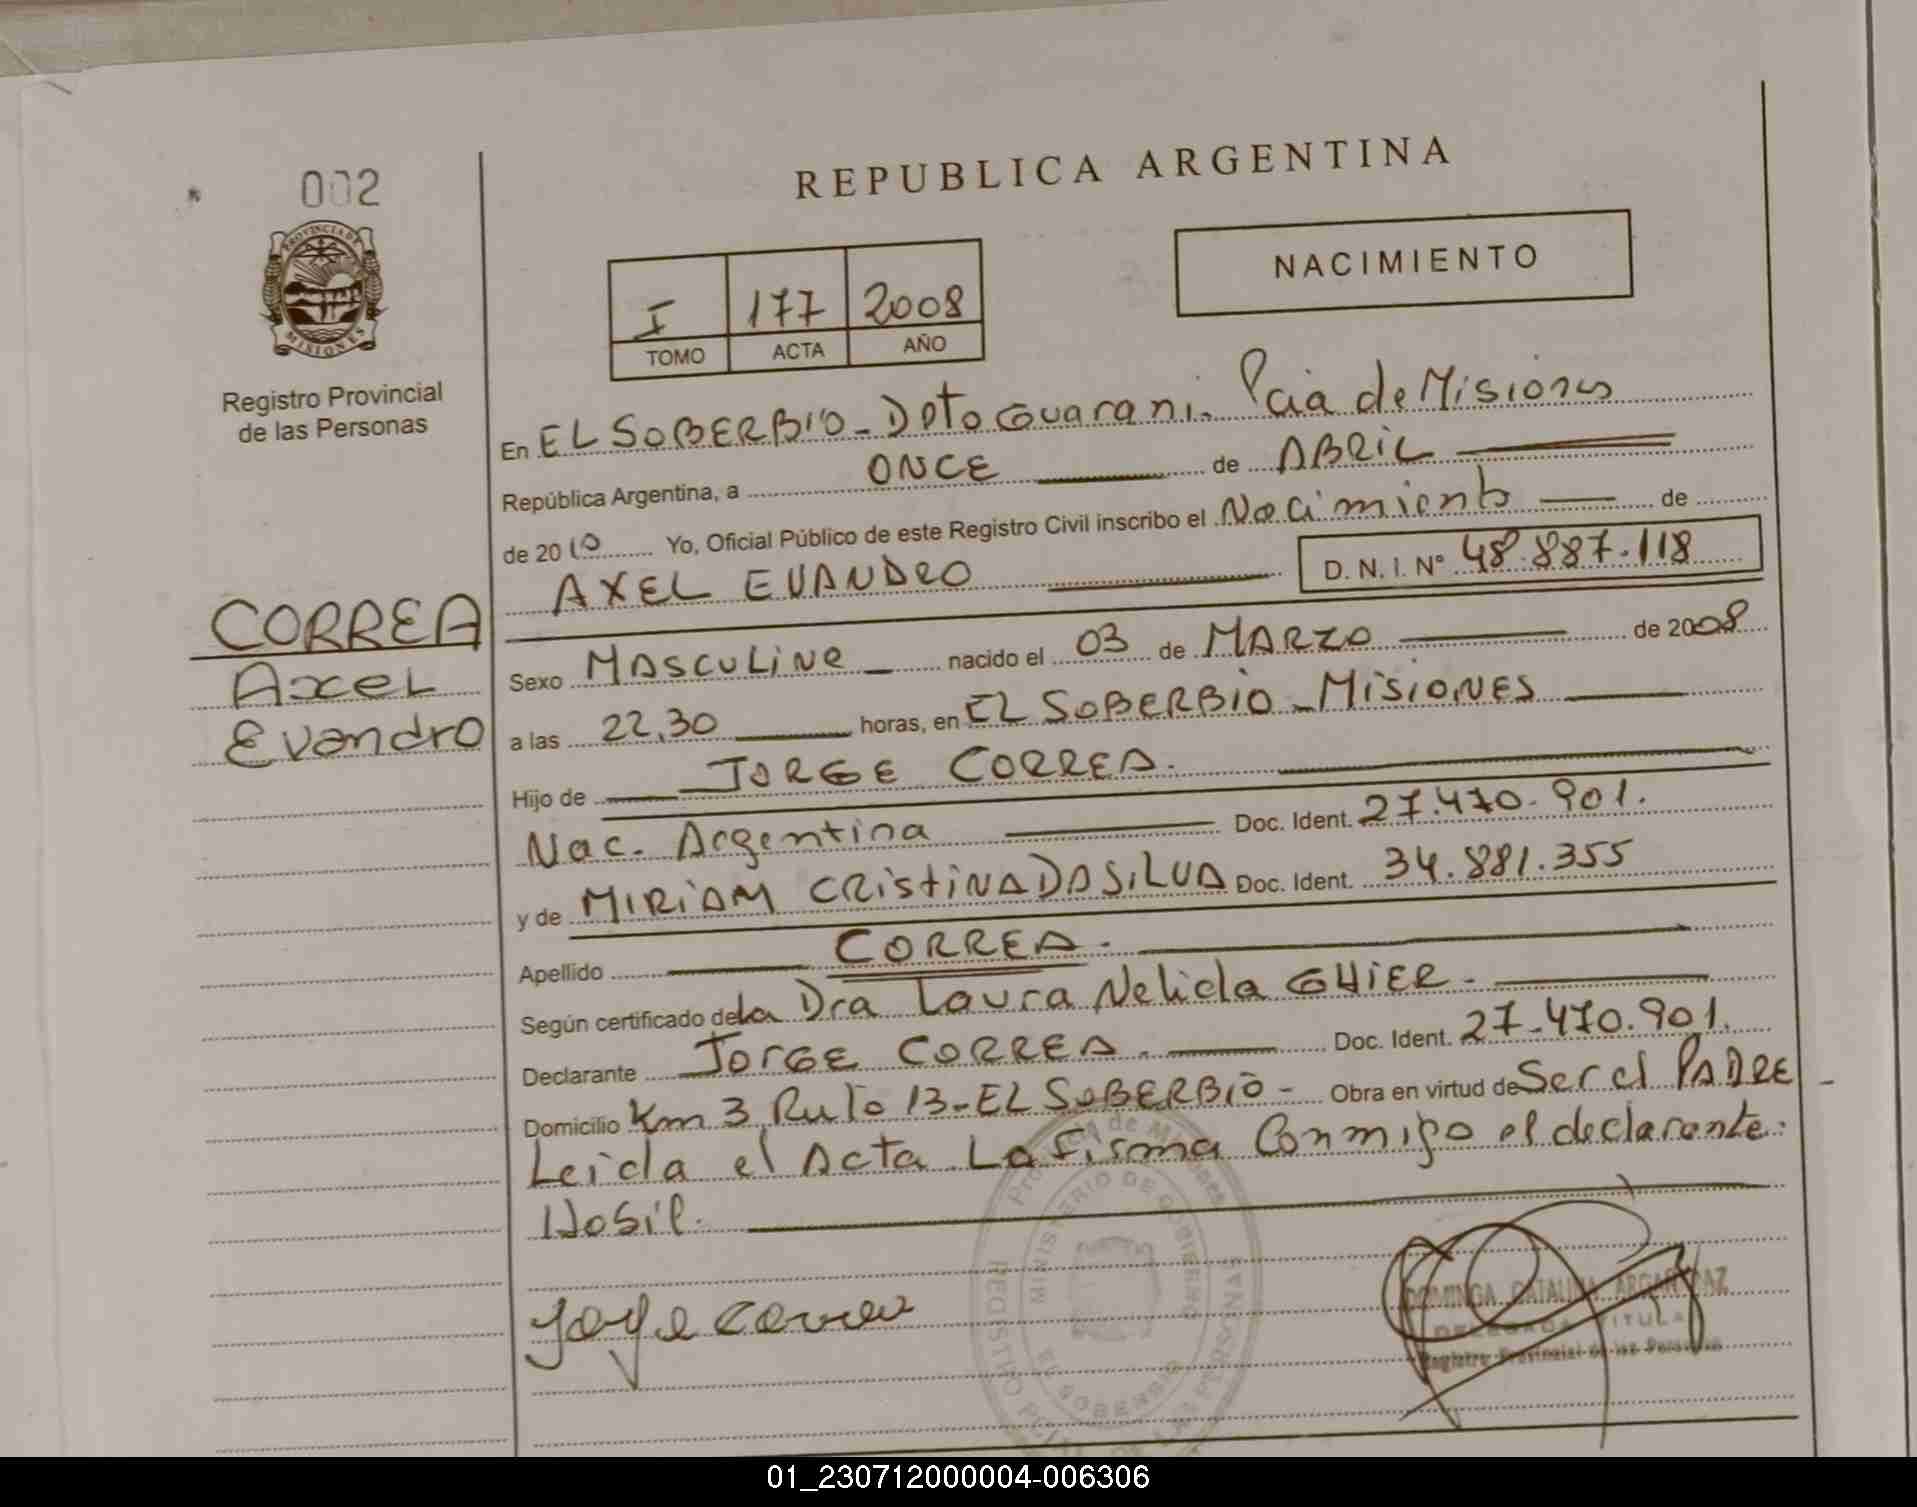 REPUBLICA ARGENTINA
002
PROVINCIA DE
MISIONES
Registro Provincial
de las Personas
NACIMIENTO
I 177 2008
TOMO ACTA AÑO
En EL SOBERBIO_ Dpto Guarani. Pcia de Misiones
República Argentina, a ONCE de ABRIL
de 2010 Yo, Oficial Público de este Registro Civil inscribo el Nacimiento de
AXEL EVANDRO D. N. I. Nº 48.887.118
CORREA
Axel
Evandro
Sexo MASCULINO nacido el 03 de MARZO de 2008
a las 22,30 horas, en EL SOBERBIO_MISIONES
Hijo de JORGE CORREA.
Nac. Argentina Doc. Ident. 27.470.901.
y de MIRIAM CRISTINA DASILVA Doc. Ident. 34.881.355
Apellido CORREA.
Según certificado de La Dra Laura Nelida GHIER.
Declarante JORGE CORREA. Doc. Ident. 27.470.901.
Domicilio Km 3 Ruta 13-EL SOBERBIO- Obra en virtud de Ser el PADRE
Leida el Acta La firma Conmigo el declarante.
Jorge Correa
DOMINGA CATALINA
DELEGADA TITULAR
Registro Provincial de las Personas
Provincia de Misiones
MINISTERIO DE GOBIERNO
EL SOBERBIO
REGISTRO PCIAL. DE LAS PERSONAS
01_230712000004-006306